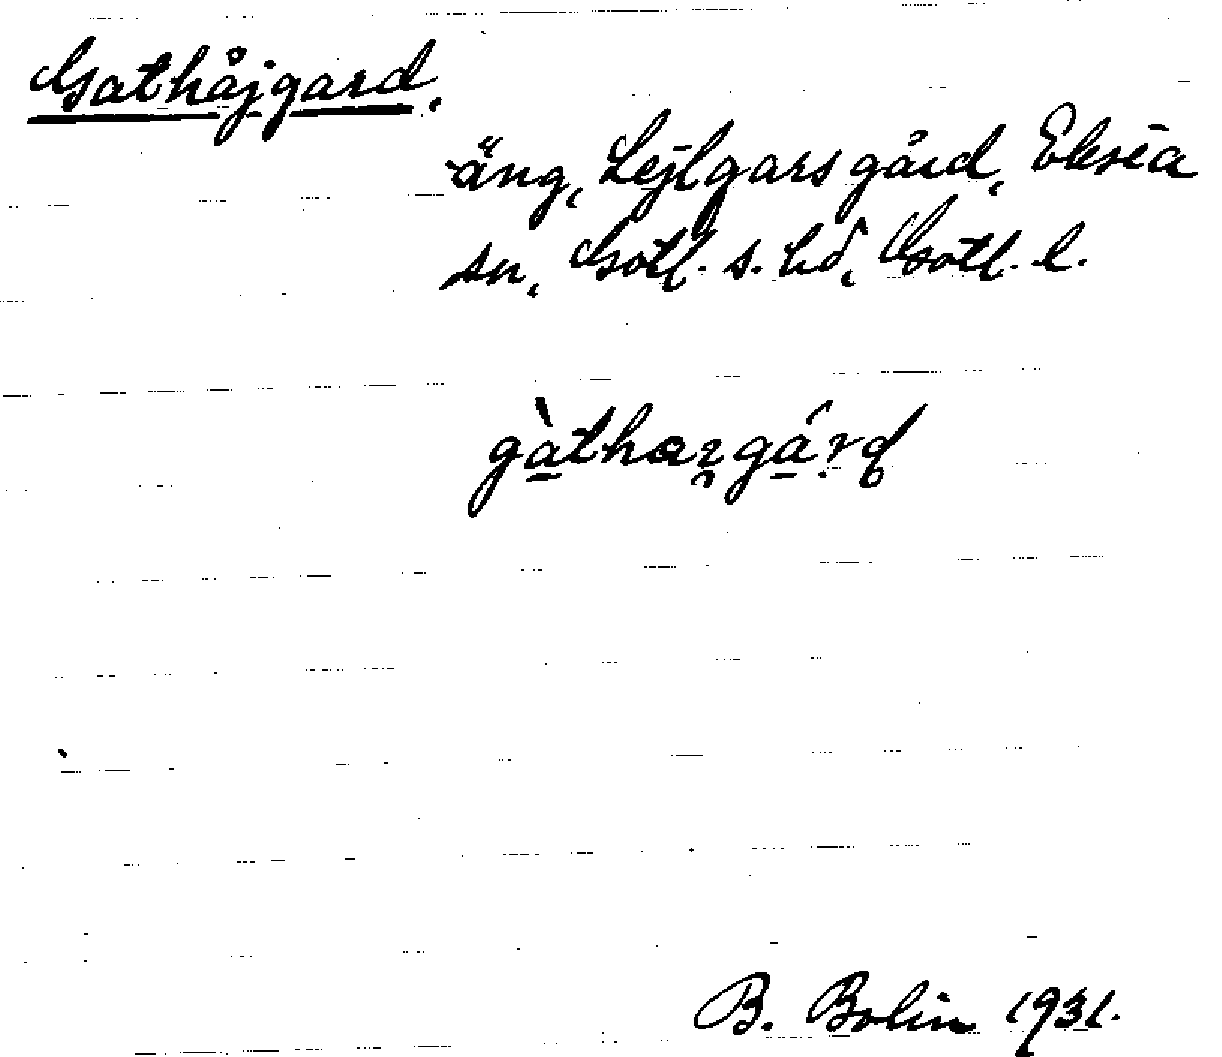 Gathåjgard.
äng, Lejlgars gård, Eksta
sn, Gotl. s. hd, Gotl. l.
gàthaꭇgárd
B. Bolin 1931.